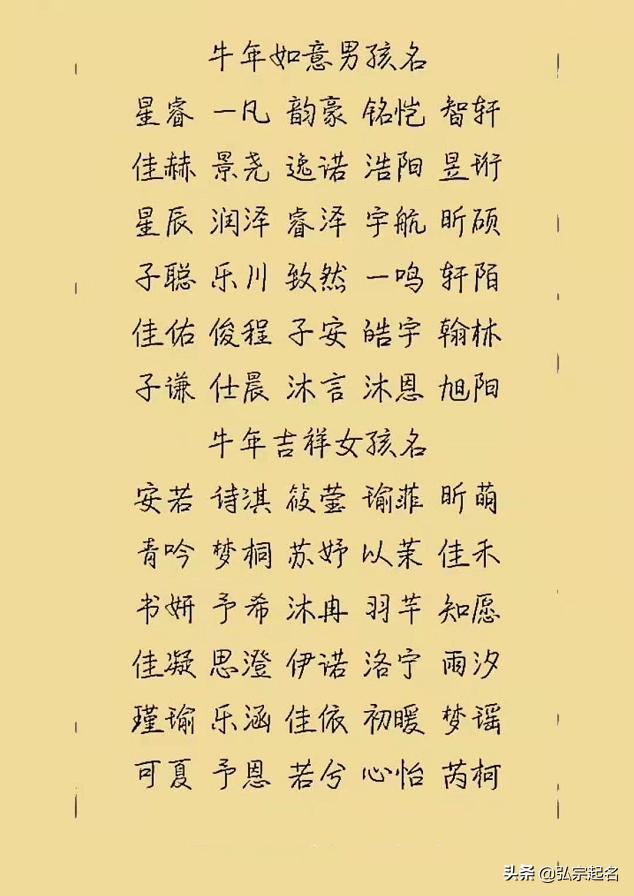 牛年如意男孩名
星睿 一凡 韵豪 铭恺 智轩
佳赫 景尧 逸诺 浩阳 昱珩
星辰 润泽 睿泽 宇航 昕硕
子聪 乐川 致然 一鸣 轩陌
佳佑 俊程 子安 皓宇 翰林
子谦 仕晨 沐言 沐恩 旭阳
牛年吉祥女孩名
安若 诗淇 筱莹 瑜菲 昕萌
青吟 梦桐 苏妤 以茉 佳禾
书妍 予希 沐冉 羽芊 知愿
佳凝 思澄 伊诺 洛宁 雨汐
瑾瑜 乐涵 佳依 初暖 梦瑶
可夏 予恩 若兮 心怡 芮柯
头条 @弘宗起名